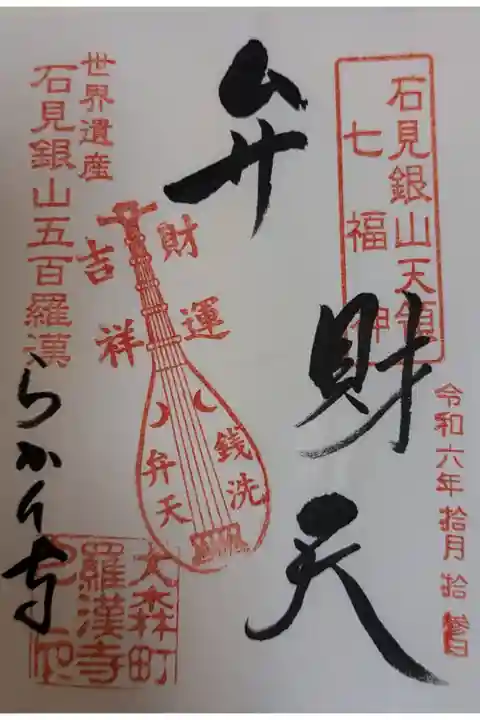 石見銀山天領
七福神
令和六年拾月拾
弁財天
財運
吉祥
銭洗
弁天
世界遺産
石見銀山五百羅漢
らかん寺
大森町
羅漢寺